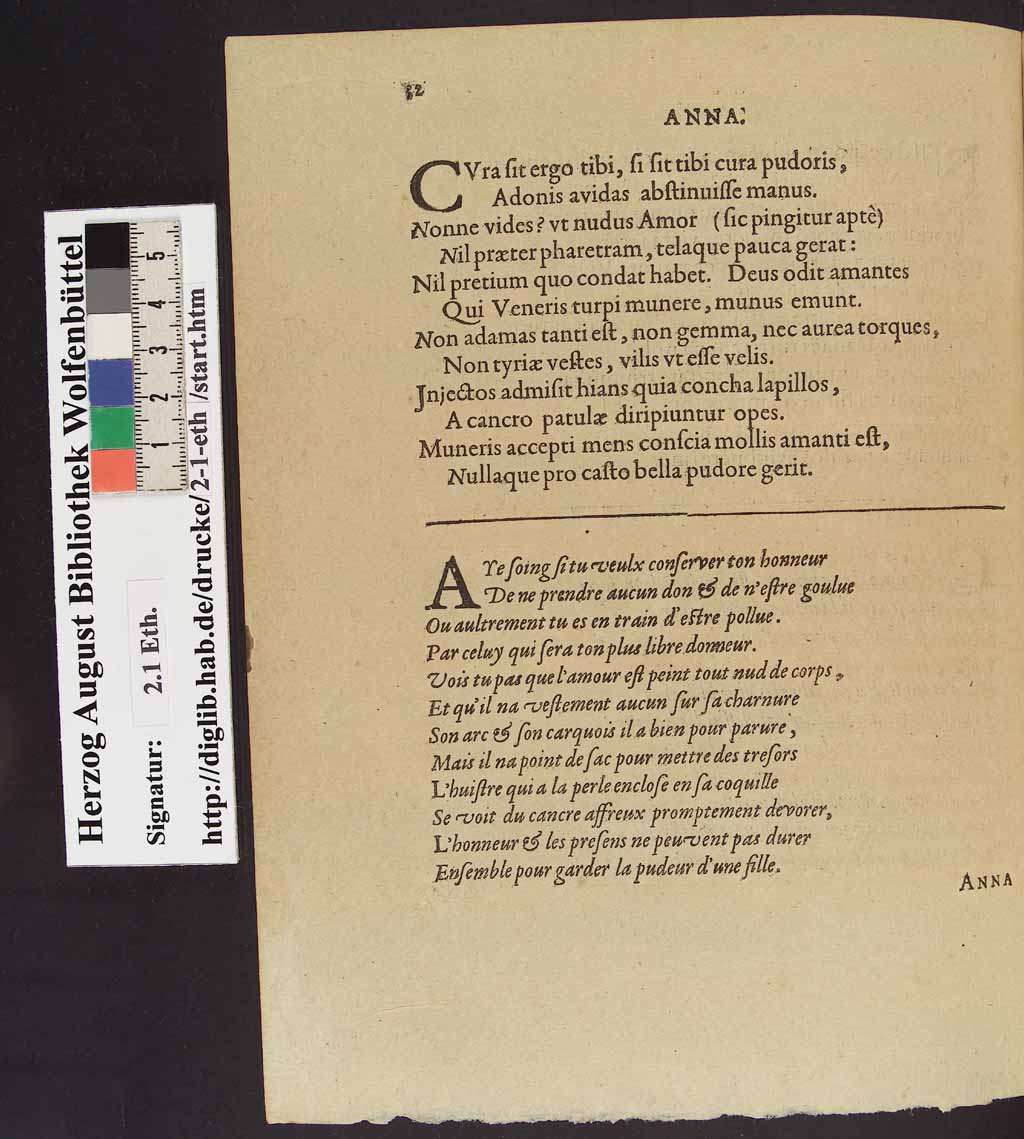 32
ANNA.
CVra ſit ergo tibi, ſi ſit tibi cura pudoris,
Adonis avidas abſtinuiſſe manus.
Nonne vides? vt nudus Amor (ſic pingitur aptè)
Nil præter pharetram, telaque pauca gerat:
Nil pretium quo condat habet. Deus odit amantes
Qui Veneris turpi munere, munus emunt.
Non adamas tanti eſt, non gemma, nec aurea torques,
Non tyriæ veſtes, vilis vt eſſe velis.
Jnjectos admiſit hians quia concha lapillos,
A cancro patulæ diripiuntur opes.
Muneris accepti mens conſcia mollis amanti eſt,
Nullaque pro caſto bella pudore gerit.
AYe ſoing ſi tu veulx conſerver ton honneur
De ne prendre aucun don & de n'eſtre goulue
Ou aultrement tu es en train d'eſtre pollue.
Par celuy qui ſera ton plus libre donneur.
Vois tu pas que l'amour eſt peint tout nud de corps,
Et qu'il na veſtement aucun ſur ſa charnure
Son arc & ſon carquois il a bien pour parure,
Mais il na point de ſac pour mettre des treſors
L'huiſtre qui a la perle encloſe en ſa coquille
Se voit du cancre affreux promptement devorer,
L'honneur & les preſens ne peuvent pas durer
Enſemble pour garder la pudeur d'une fille.
ANNA
Herzog August Bibliothek Wolfenbüttel
Signatur: 2.1 Eth.
http://diglib.hab.de/drucke/2-1-eth /start.htm
1 2 3 4 5